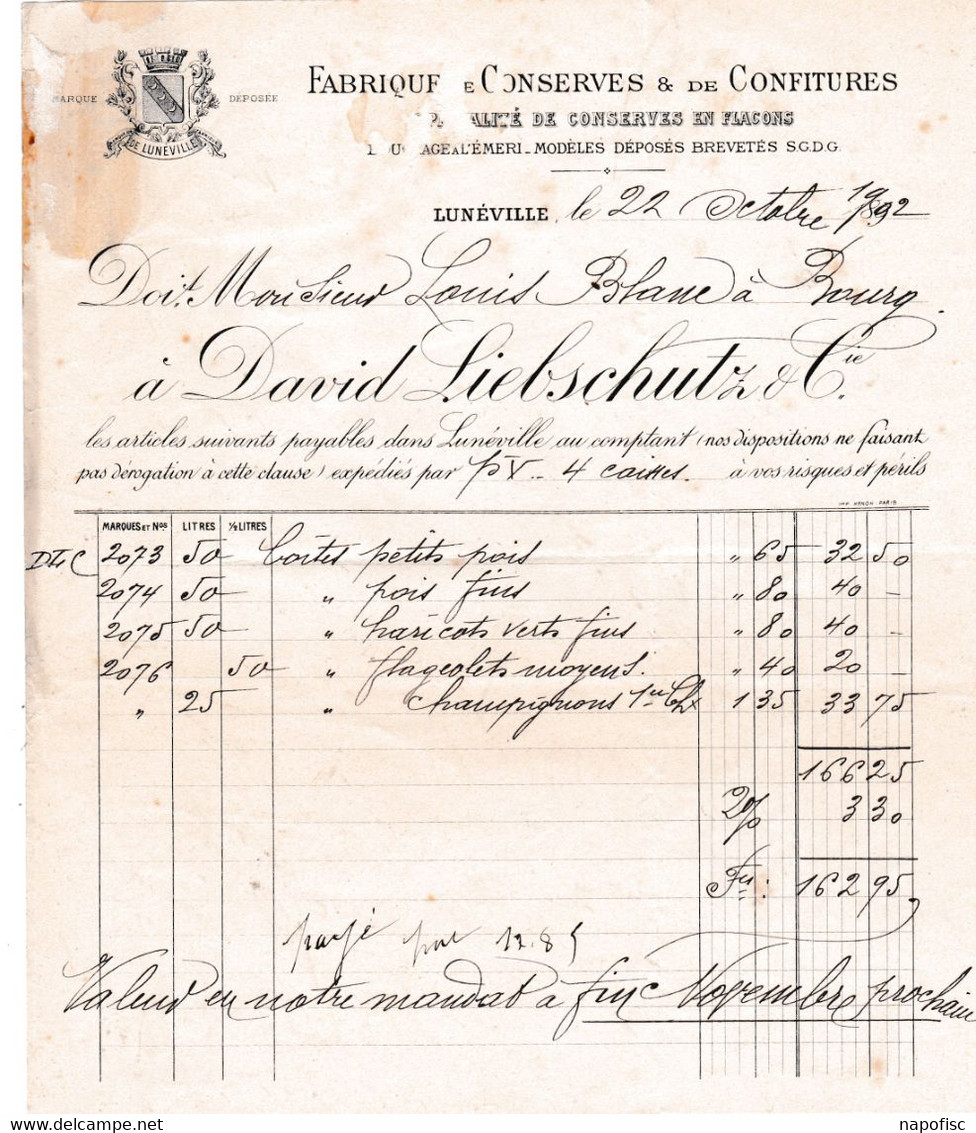 MARQUE DÉPOSÉE
DE LUNÉVILLE
FABRIQUE E CONSERVES & DE CONFITURES
ALITÉ DE CONSERVES EN FLACONS
AGE A L'ÉMERI _ MODÈLES DÉPOSÉS BREVETÉS S.G.D.G.
LUNÉVILLE, le 22 Octobre 1892
Doit Monsieur Louis Blanc à Bourg
à David Liebschutz & Cie
les articles suivants payables dans Lunéville au comptant (nos dispositions ne faisant
pas dérogation à cette clause) expédiés par PV _ 4 caisses. à vos risques et périls
IMP. PARIS
MARQUES ET Nos LITRES ½ LITRES
DLC 2073 50 boîtes petits pois " 65 32 50
2074 50 " pois fins " 80 40 _
2075 50 " haricots verts fins " 80 40 _
2076 50 " flageolets moyens " 40 20 _
" 25 " champignons 1er Chx 1 35 33 75
166 25
2% 3 30
Frs : 162 95
payé par 12.85
Valeur en notre mandat à fin Novembre prochain
www.delcampe.net
napofisc